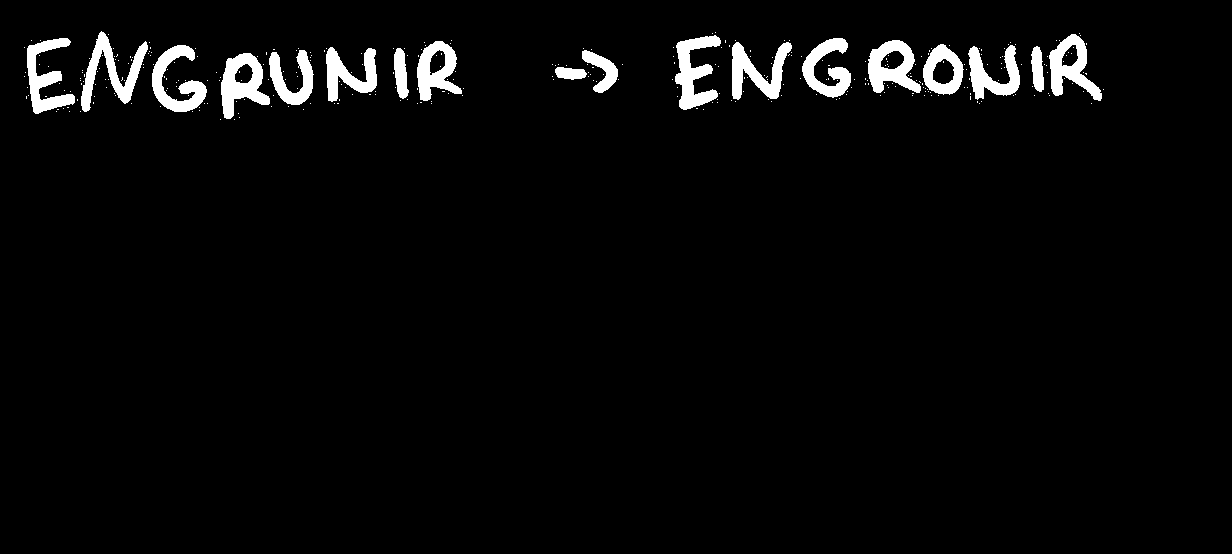 ENGRUNIR -> ENGRONIR